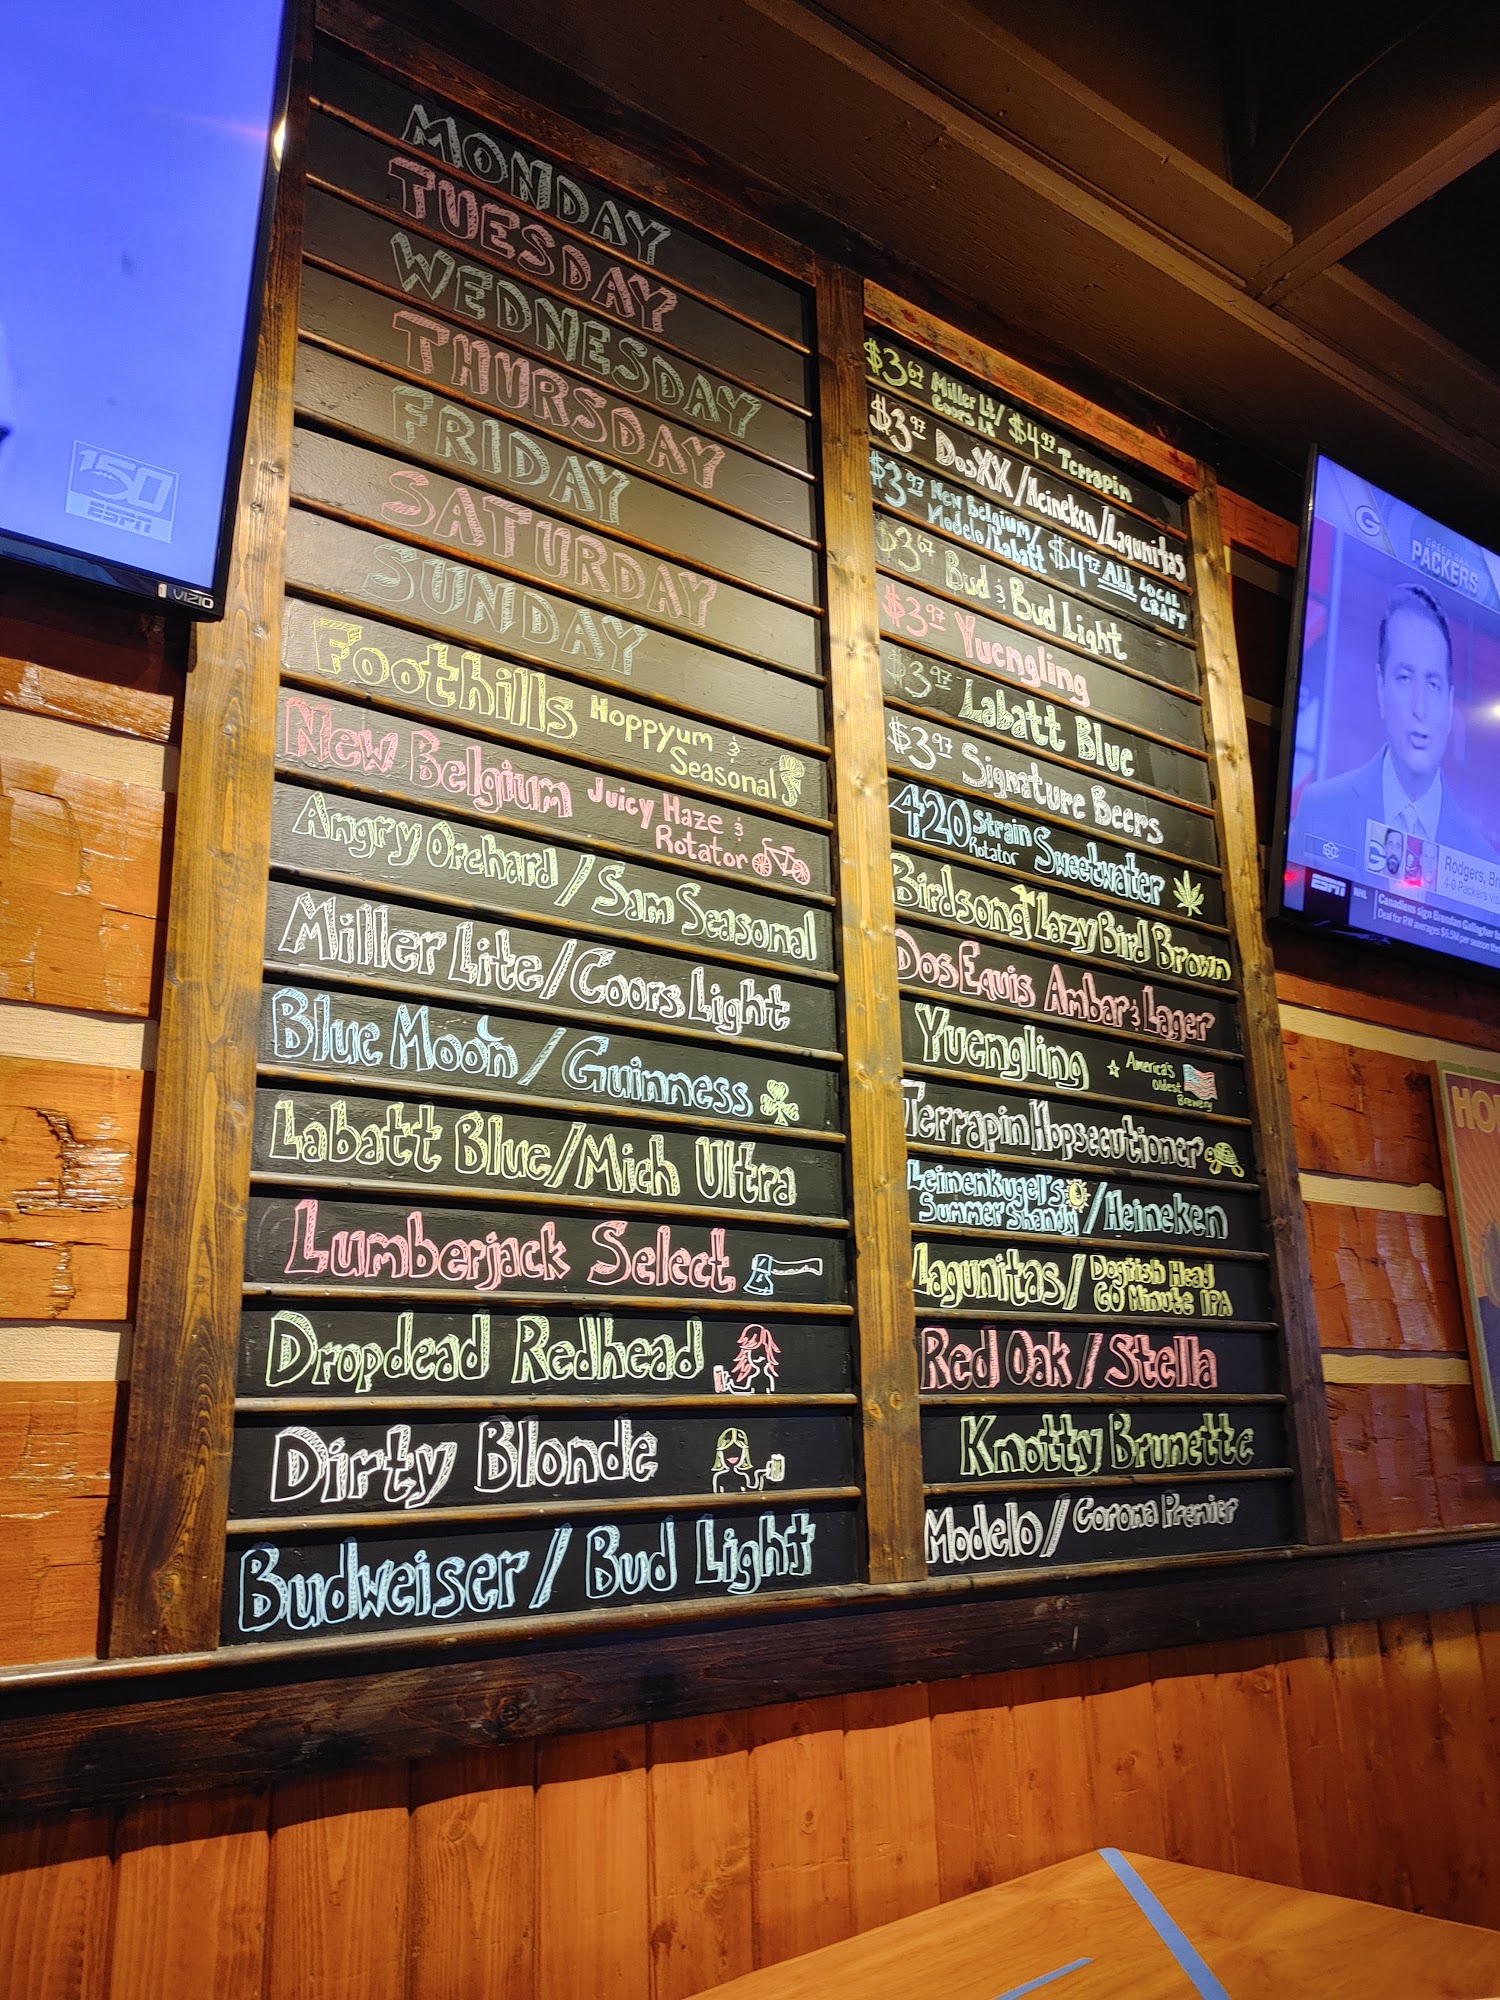 MONDAY
TUESDAY
WEDNESDAY
THURSDAY
FRIDAY
SATURDAY
SUNDAY
Foothills Hoppyum &
Seasonal
New Belgium Juicy Haze &
Rotator
Angry Orchard / Sam Seasonal
Miller Lite / Coors Light
Blue Moon / Guinness
Labatt Blue / Mich Ultra
Lumberjack Select
Dropdead Redhead
Dirty Blonde
Budweiser / Bud Light
$3.67 Miller Lt/
Coors Lt $4.97 Terrapin
$3.97 Dos XX / Heineken / Lagunitas
$3.97 New Belgium/
Modelo/Labatt $4.97 ALL LOCAL
CRAFT
$3.67 Bud & Bud Light
$3.97 Yuengling
$3.97 Labatt Blue
$3.97 Signature Beers
420 Strain
Rotator Sweetwater
Birdsong Lazy Bird Brown
Dos Equis Ambar & Lager
Yuengling America's
Oldest
Brewery
Terrapin Hopsecutioner
Leinenkugel's
Summer Shandy / Heineken
Lagunitas / Dogfish Head
60 Minute IPA
Red Oak / Stella
Knotty Brunette
Modelo / Corona Premier
150
ESPN
VIZIO
G
GREEN BAY
PACKERS
Rodgers, Br
4-0 Packers
ESPN NHL Canadiens sign Brendan Gallagher
Deal for RW averages $6.5M per season
HO